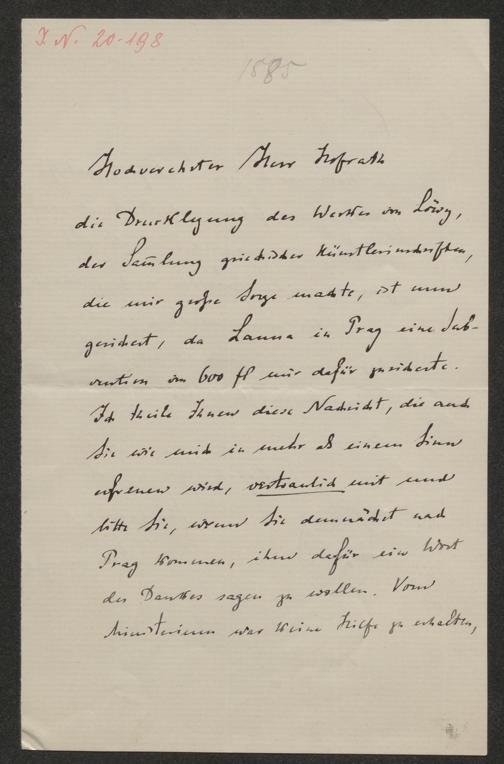 I. N. 20.198
1885
Hochverehrter Herr Hofrath
die Drucklegung des Werkes von Löwy,
der Sam̅lung griechischer Künstlerinschriften,
die mir große Sorge machte, ist nun
gesichert, da Lanna in Prag eine Sub-
vention von 600 fl mir dafür zusicherte.
Ich theile Ihnen diese Nachricht, die auch
Sie wie mich in mehr als einem Sinn
erfreuen wird, vertraulich mit und
bitte Sie, wenn Sie demnächst nach
Prag kommen, ihm dafür ein Wort
des Dankes sagen zu wollen. Vom
Ministerium war keine Hilfe zu erhalten,